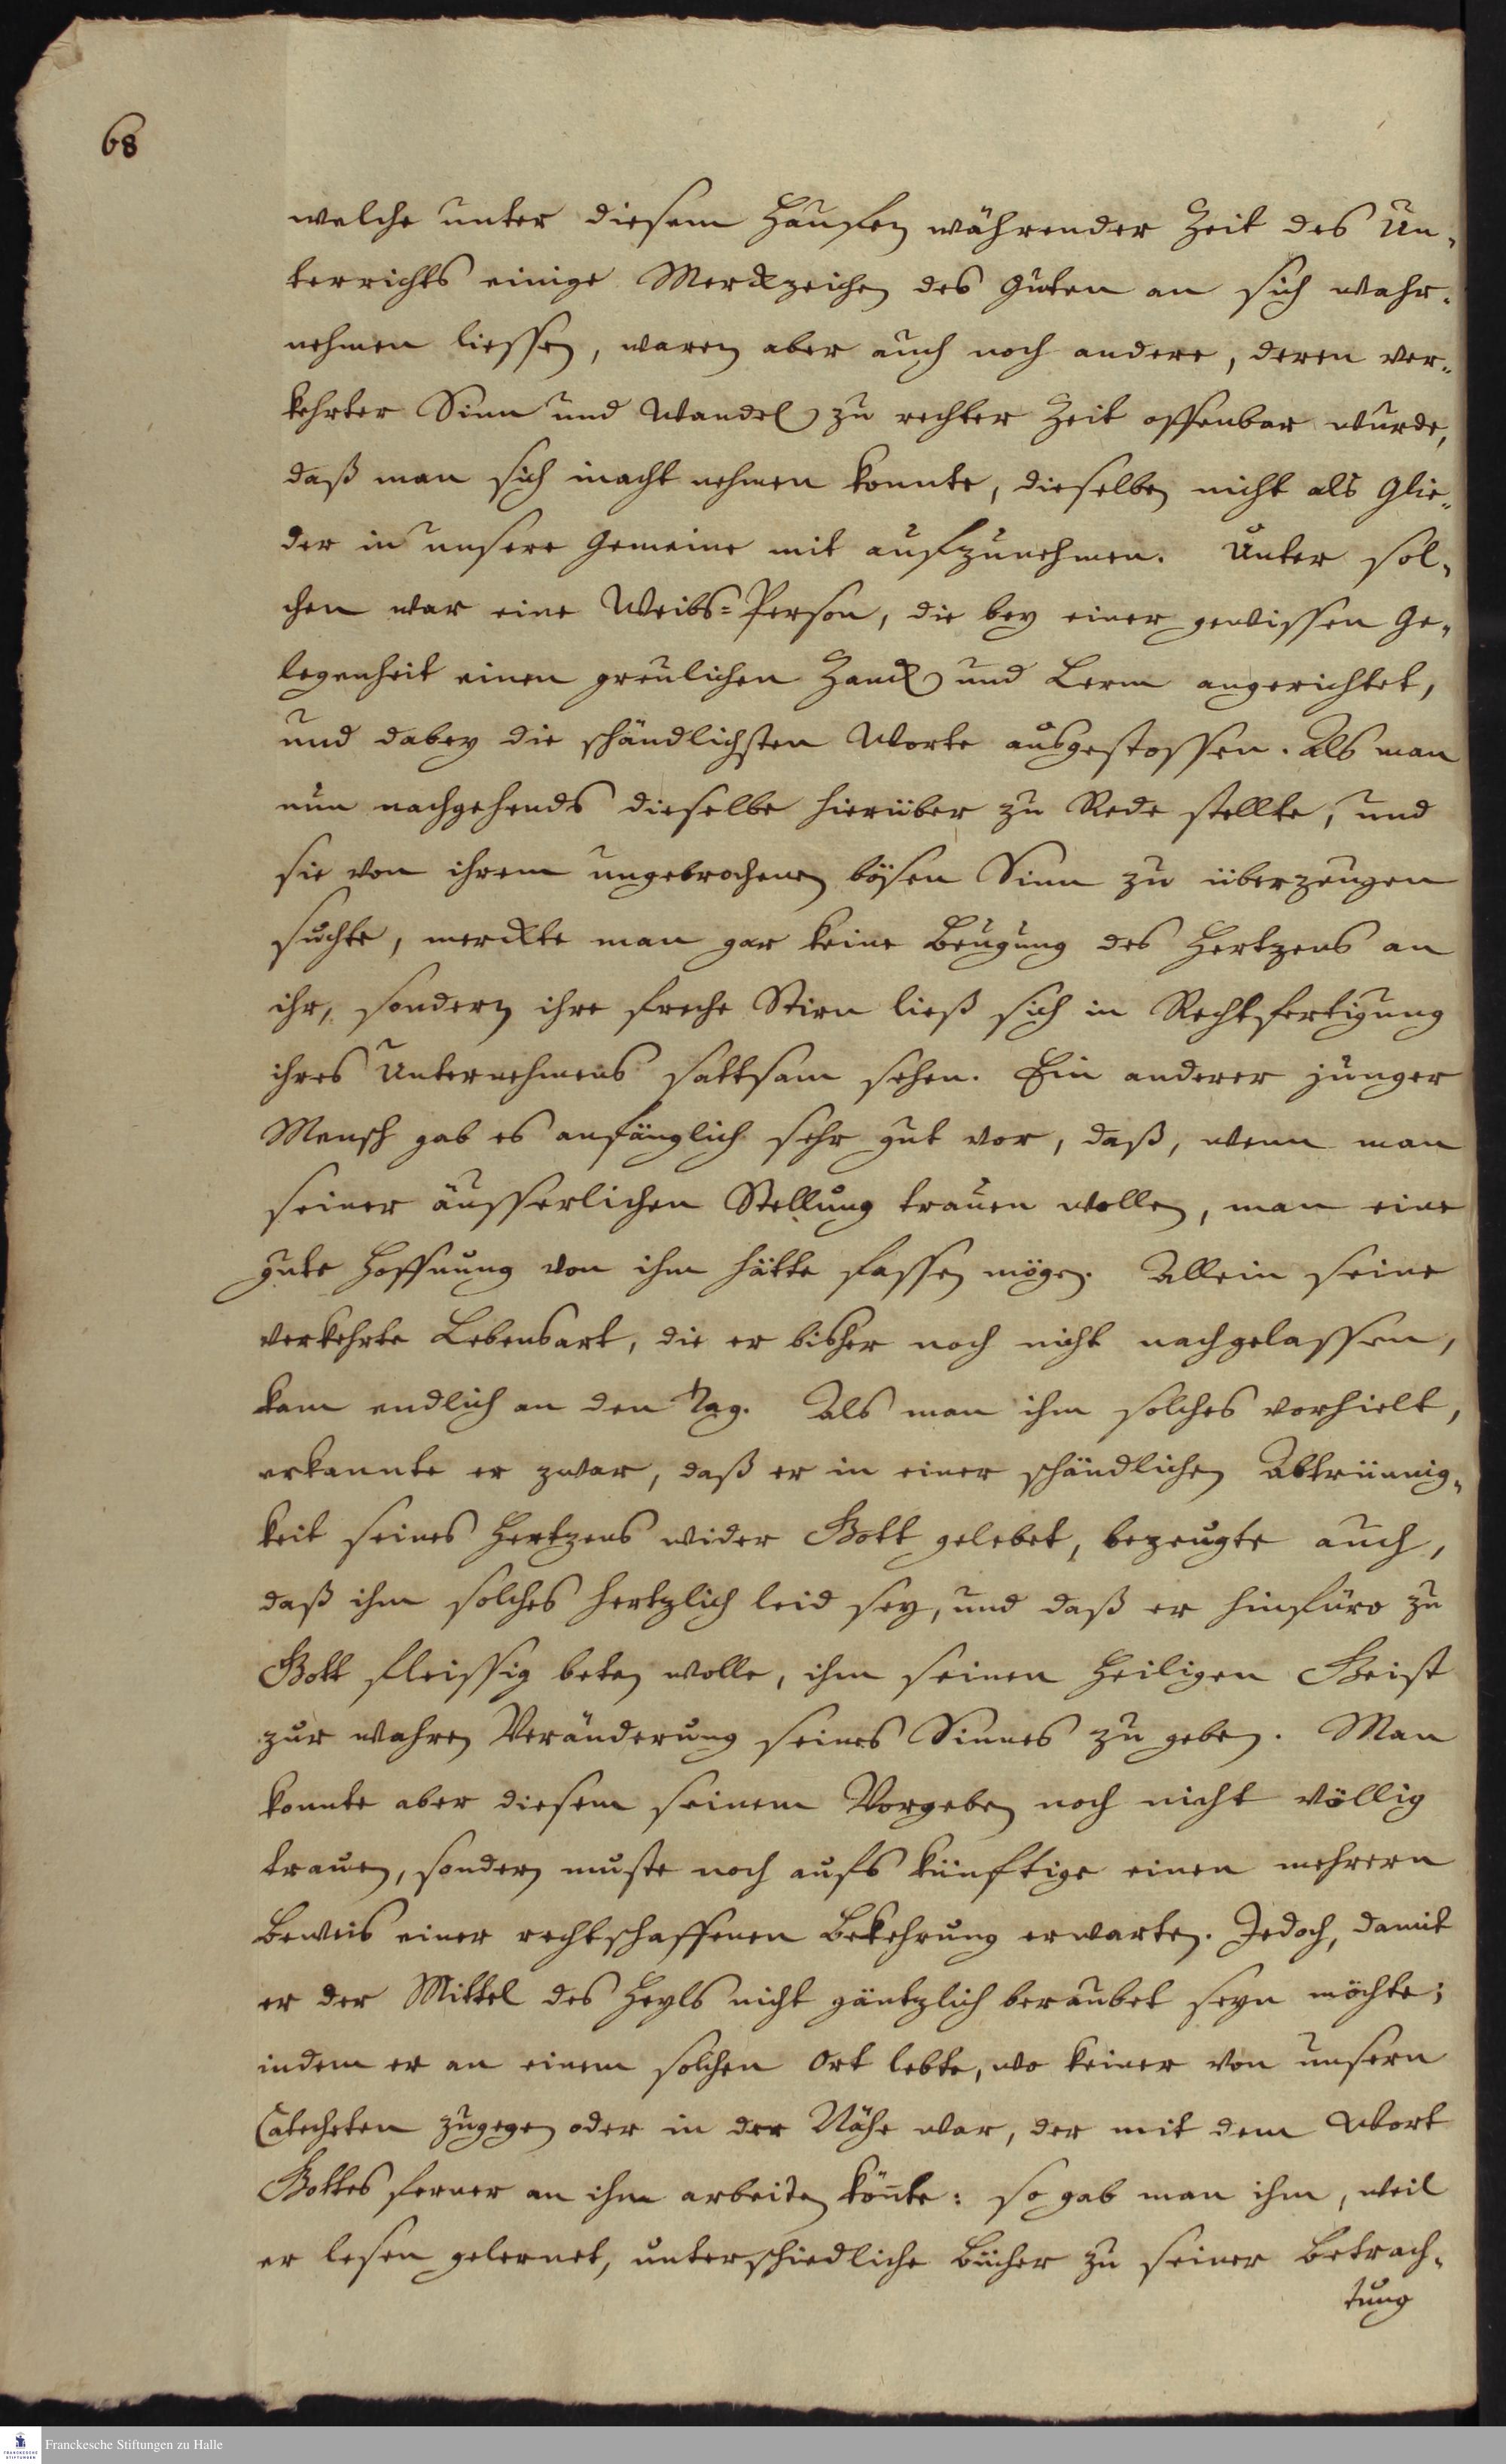 68
welche unter diesem Hauffen währender Zeit des Un-
terrichts einige Merckzeichen des Guten an sich wahr-
nehmen liessen, waren aber auch noch andere, deren ver-
kehrter Sinn und Wandel zu rechter Zeit offenbar wurde,
daß man sich inacht nehmen konnte, dieselben nicht als Glie-
der in unsere Gemeine mit aufzunehmen. Unter sol-
chen war eine Weibs-Person, die bey einer gewissen Ge-
legenheit einen greulichen Zanck und Lerm angerichtet,
und dabey die schändlichsten Worte ausgestossen. Als man
nun nachgehends dieselbe hierüber zu Rede stellte, und
sie von ihrem ungebrochenen bösen Sinn zu überzeugen
suchte, merckte man gar keine Beugung des Hertzens an
ihr, sondern ihre freche Stirn ließ sich in Rechtfertigung
ihres Unternehmens sattsam sehen. Ein anderer junger
Mensch gab es anfänglich sehr gut vor, daß, wenn man
seiner äusserlichen Stellung trauen wollen, man eine
gute Hoffnung von ihm hätte fassen mögen. Allein seine
verkehrte Lebensart, die er bisher noch nicht nachgelassen,
kam endlich an den Tag. Als man ihm solches vorhielt,
erkannte er zwar, daß er in einer schändlichen Abtrünnig-
keit seines Hertzens wider Gott gelebet, bezeugte auch,
daß ihm solches hertzlich leid sey, und daß er hinfüro zu
Gott fleissig beten wolle, ihm seinen Heiligen Geist
zur wahren Veränderung seines Sinnes zu geben. Man
konnte aber diesem seinem Vorgeben noch nicht völlig
trauen, sondern muste noch aufs künftige einen mehrern
Beweis einer rechtschaffenen Bekehrung erwarten. Jedoch, damit
er der Mittel des Heyls nicht gäntzlich beraubet seyn möchte;
indem er an einem solchen Ort lebte, wo keiner von unsern
Catecheten zugegen oder in der Nähe war, der mit dem Wort
Gottes ferner an ihm arbeiten kön̄te: so gab man ihm, weil
er lesen gelernet, unterschiedliche Bücher zu seiner Betrach-
tung
Franckesche Stiftungen zu Halle
FRANCKESCHE STIFTUNGEN